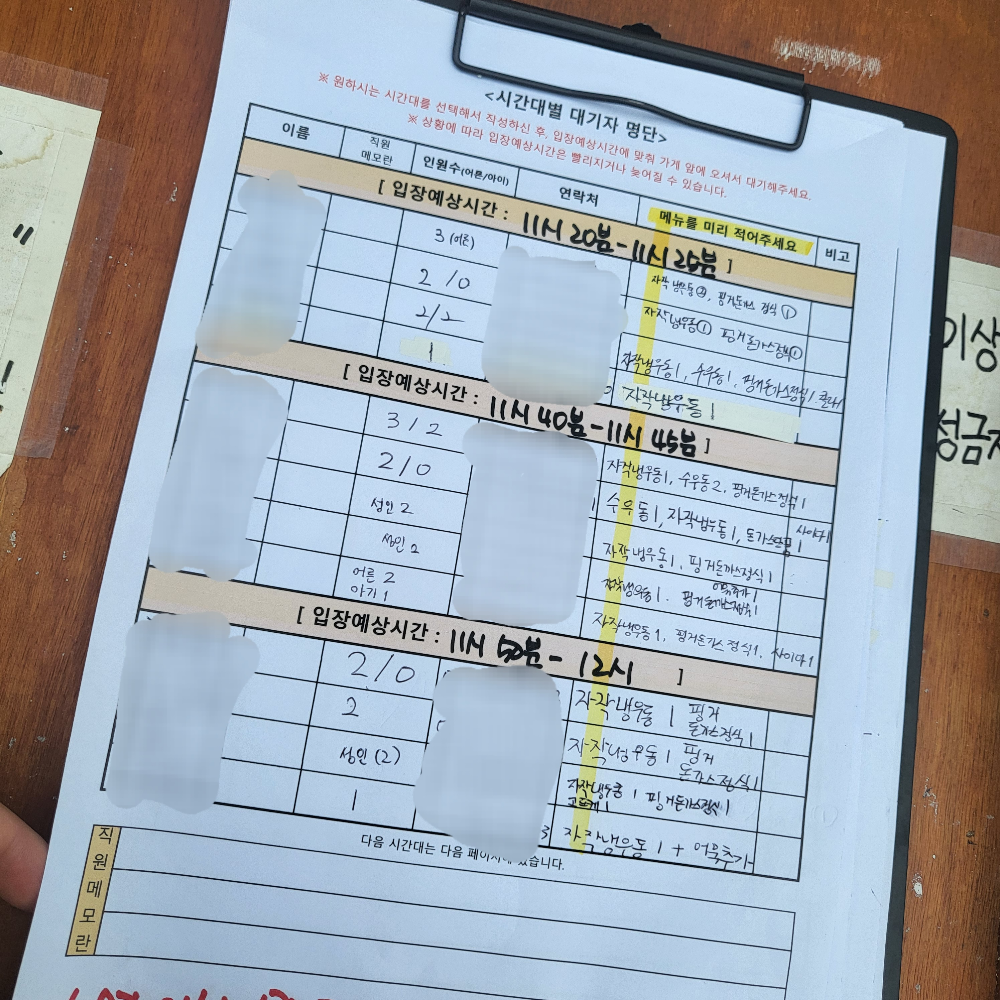 <시간대별 대기자 명단>
※ 원하시는 시간대를 선택해서 작성하신 후, 입장예상시간에 맞춰 가게 앞에 오셔서 대기해주세요.
※ 상황에 따라 입장예상시간은 빨리지거나 늦어질 수 있습니다.
이름 직원 메모란 인원수(어른/아이) 연락처 메뉴를 미리 적어주세요 비고
[ 입장예상시간 : 11시 20분-11시 25분 ]
3 (어른) 자작냉우동②, 핑거돈까스 정식①
2/0 자작냉우동① 핑거돈가스정식①
2/2 자작냉우동1, 수우동1, 핑거돈가스정식1 콜라1
1 자작냉우동1
[ 입장예상시간 : 11시 40분-11시 45분 ]
3/2 자작냉우동1, 수우동2, 핑거돈까스정식1
2/0 수우동1, 자작냉우동1, 돈가스 1 사이다1
성인 2 자작냉우동1, 핑거돈까스정식1
성인 2 자작냉우동1. 핑거돈까스정식1 어묵추가1
어른 2
아기 1 자작냉우동1, 핑거돈가스정식1, 사이다1
[ 입장예상시간 : 11시 50분- 12시 ]
2/0 자작냉우동1 핑거
돈가스정식1
2 자작냉우동1 핑거
돈가스정식1
성인(2) 자작냉우동1 핑거돈까스정식1
1 3 자작냉우동1 + 어묵추가
다음 시간대는 다음 페이지에 있습니다.
직원메모란
이상
성금